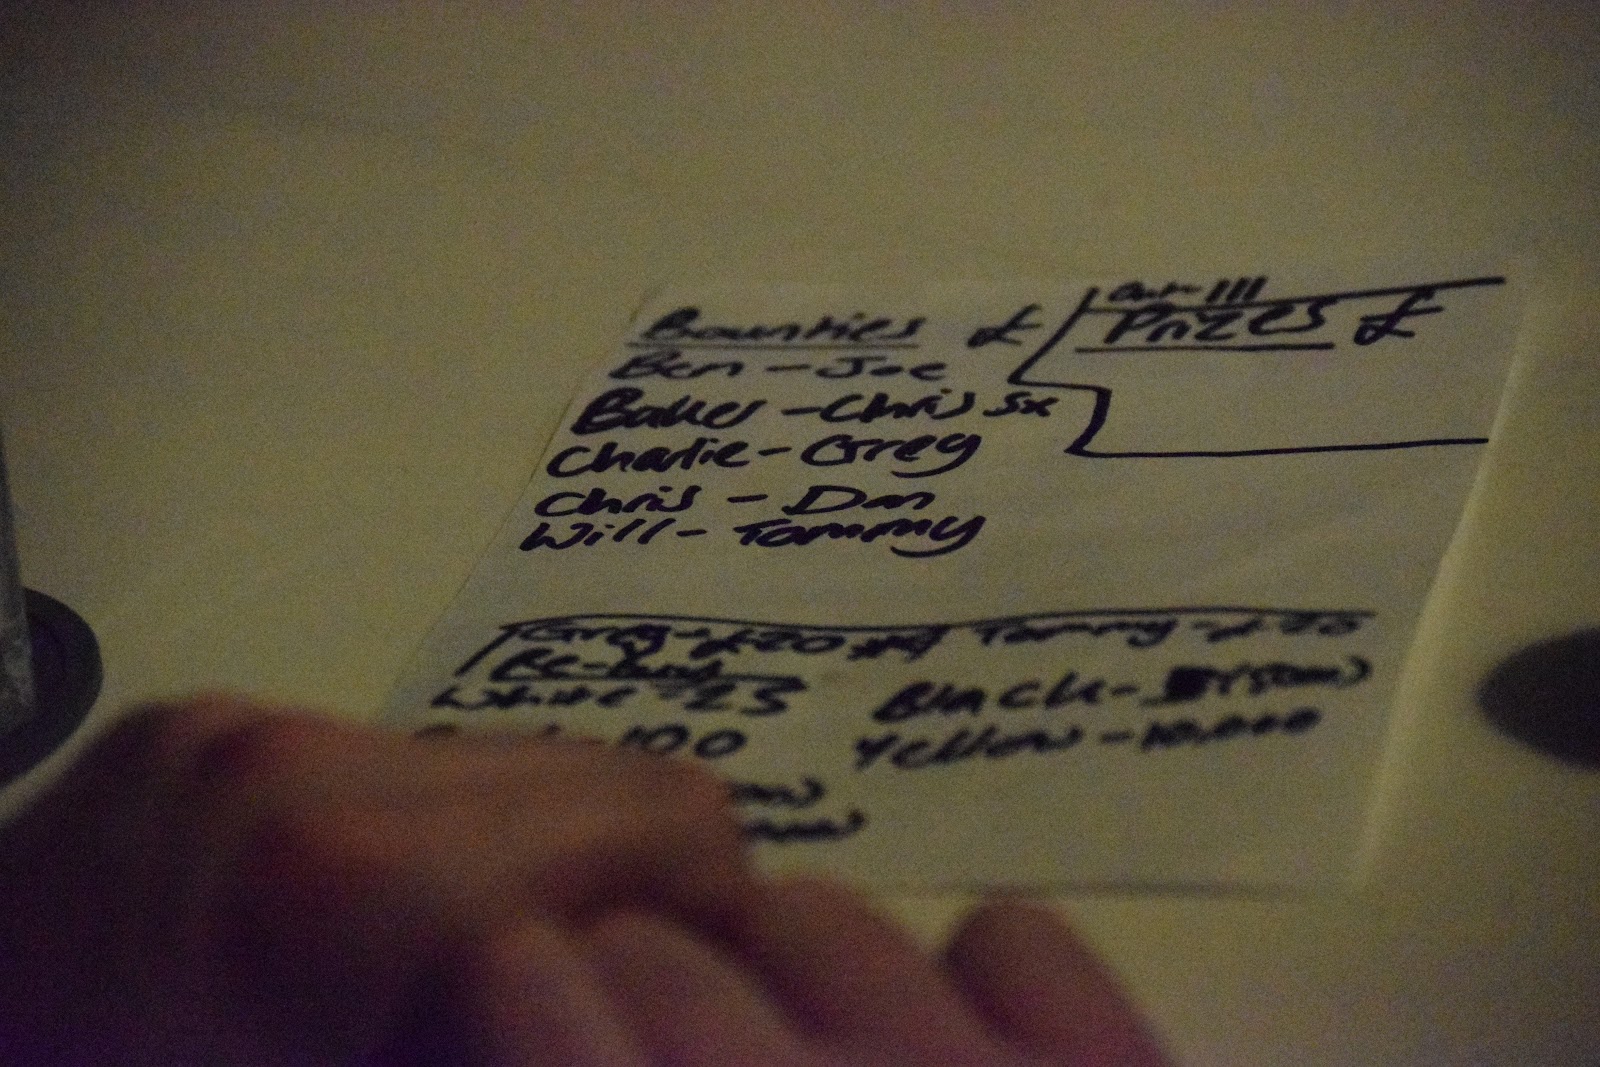 Bounties £
Prizes £
Ben - Joe
Baker - Chris sx
Charlie - Greg
Chris - Dan
Will - Tommy
Greg - £20 Tommy - £20
Re-buys
White - 25 Black -
100 Yellow - 10,000